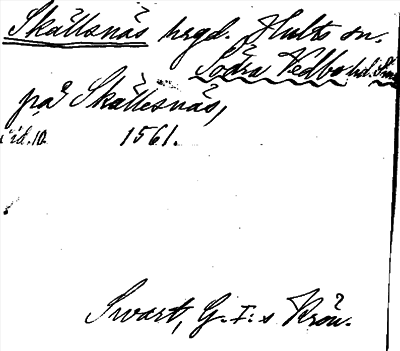 Skällsnäs hrgd. Hults sn.
Södra Vedbo hd. Sm
på Skällesnäs,
sid. 10. 1561.
Swart, G. I:s Krön.